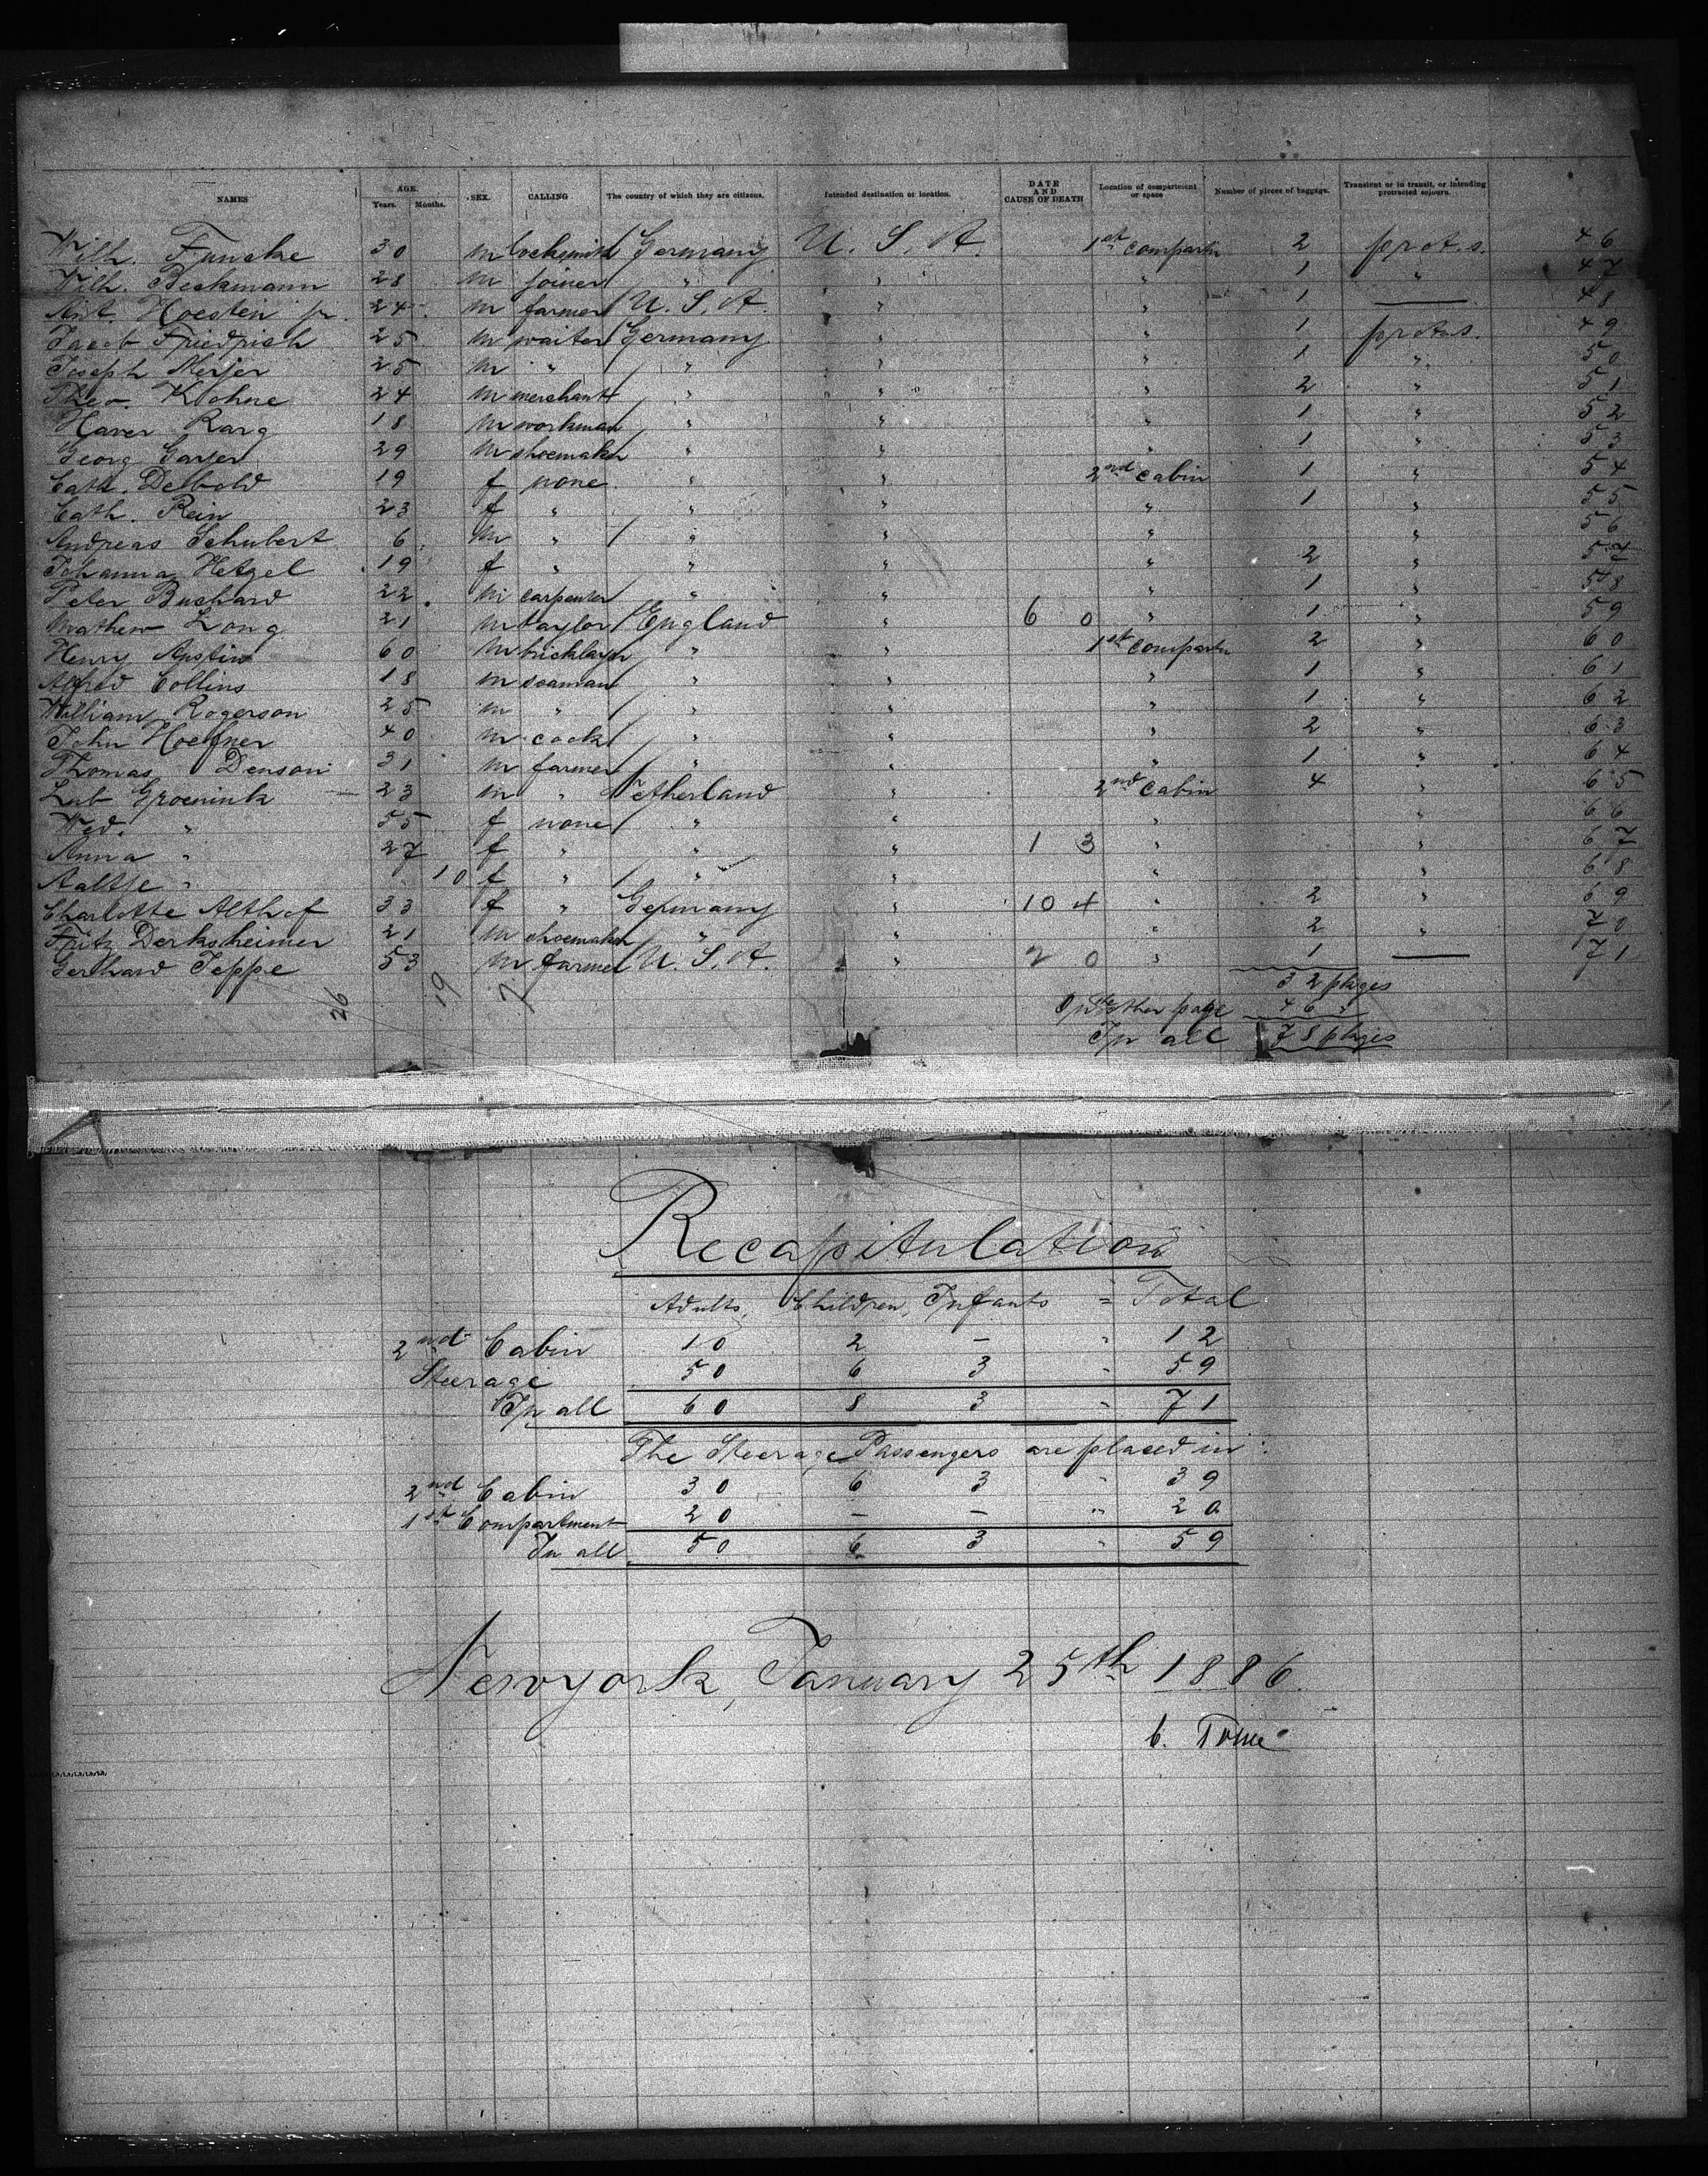 NAMES AGE. Years. Months. SEX. CALLING The country of which they are citizens. Intended destination or location. DATE AND CAUSE OF DEATH Location of compartment or space Number of pieces of baggage. Transient or in transit, or intending protracted sojourn.
Wilh. Funcke 30 m locksmith Germany U. S. A. 1st compartm 2 prot. s. 46
Wilh. Beckmann 28 m joiner " " " 1 " 47
Ant. Hoesten jr. 24 m farmer U. S. A. " " 1 — 48
Jacob Friedrich 25 m waiter Germany " " 1 prot. s. 49
Joseph Meijer 25 m " " " " 1 " 50
Theo. Kohne 24 m merchant " " " 2 " 51
Xaver Rarg 18 m workman " " " 1 " 52
Georg 29 m shoemaker " " " 1 " 53
Cath. Debold 19 f none " " 2nd cabin 1 " 54
Cath. Rein 23 f " " " " 1 " 55
Andreas Schubert 6 m " " " " " 56
Johanna Hetzel 19 f " " " " 2 " 57
Peter Buchard 22 m carpenter " " " 1 " 58
Mathew Long 21 m taylor England " 6 0 " 1 " 59
Henry Austin 60 m bricklayer " " 1st compartm 2 " 60
Alfred Collins 18 m seaman " " " 1 " 61
William Rogerson 25 m " " " " 1 " 62
John Hoefner 40 m cook " " " 2 " 63
Thomas Denson 31 m farmer " " " 1 " 64
Lub Groenink 23 m " Netherland " 2nd cabin 4 " 65
Wed. " 55 f none " " " " 66
Anna " 27 f " " " 1 3 " " 67
Aaltje " 10 f " " " " " 68
Charlotte Althof 33 f " Germany " 10 4 " 2 " 69
Fritz Derksheimer 21 m shoemaker " " " 2 " 70
Gerhard Teppe 53 m farmer U. S. A. " 2 0 " 1 — 71
26 19 7
32 pkges
On the other page 46 "
In all 78 pkges
Recapitulation
Adults, Children, Infants = Total
2nd Cabin 10 2 – " 12
Steerage 50 6 3 " 59
In all 60 8 3 " 71
The Steerage Passengers are placed in:
2nd Cabin 30 6 3 " 39
1st Compartment 20 – – " 20
In all 50 6 3 " 59
Newyork, January 25th 1886.